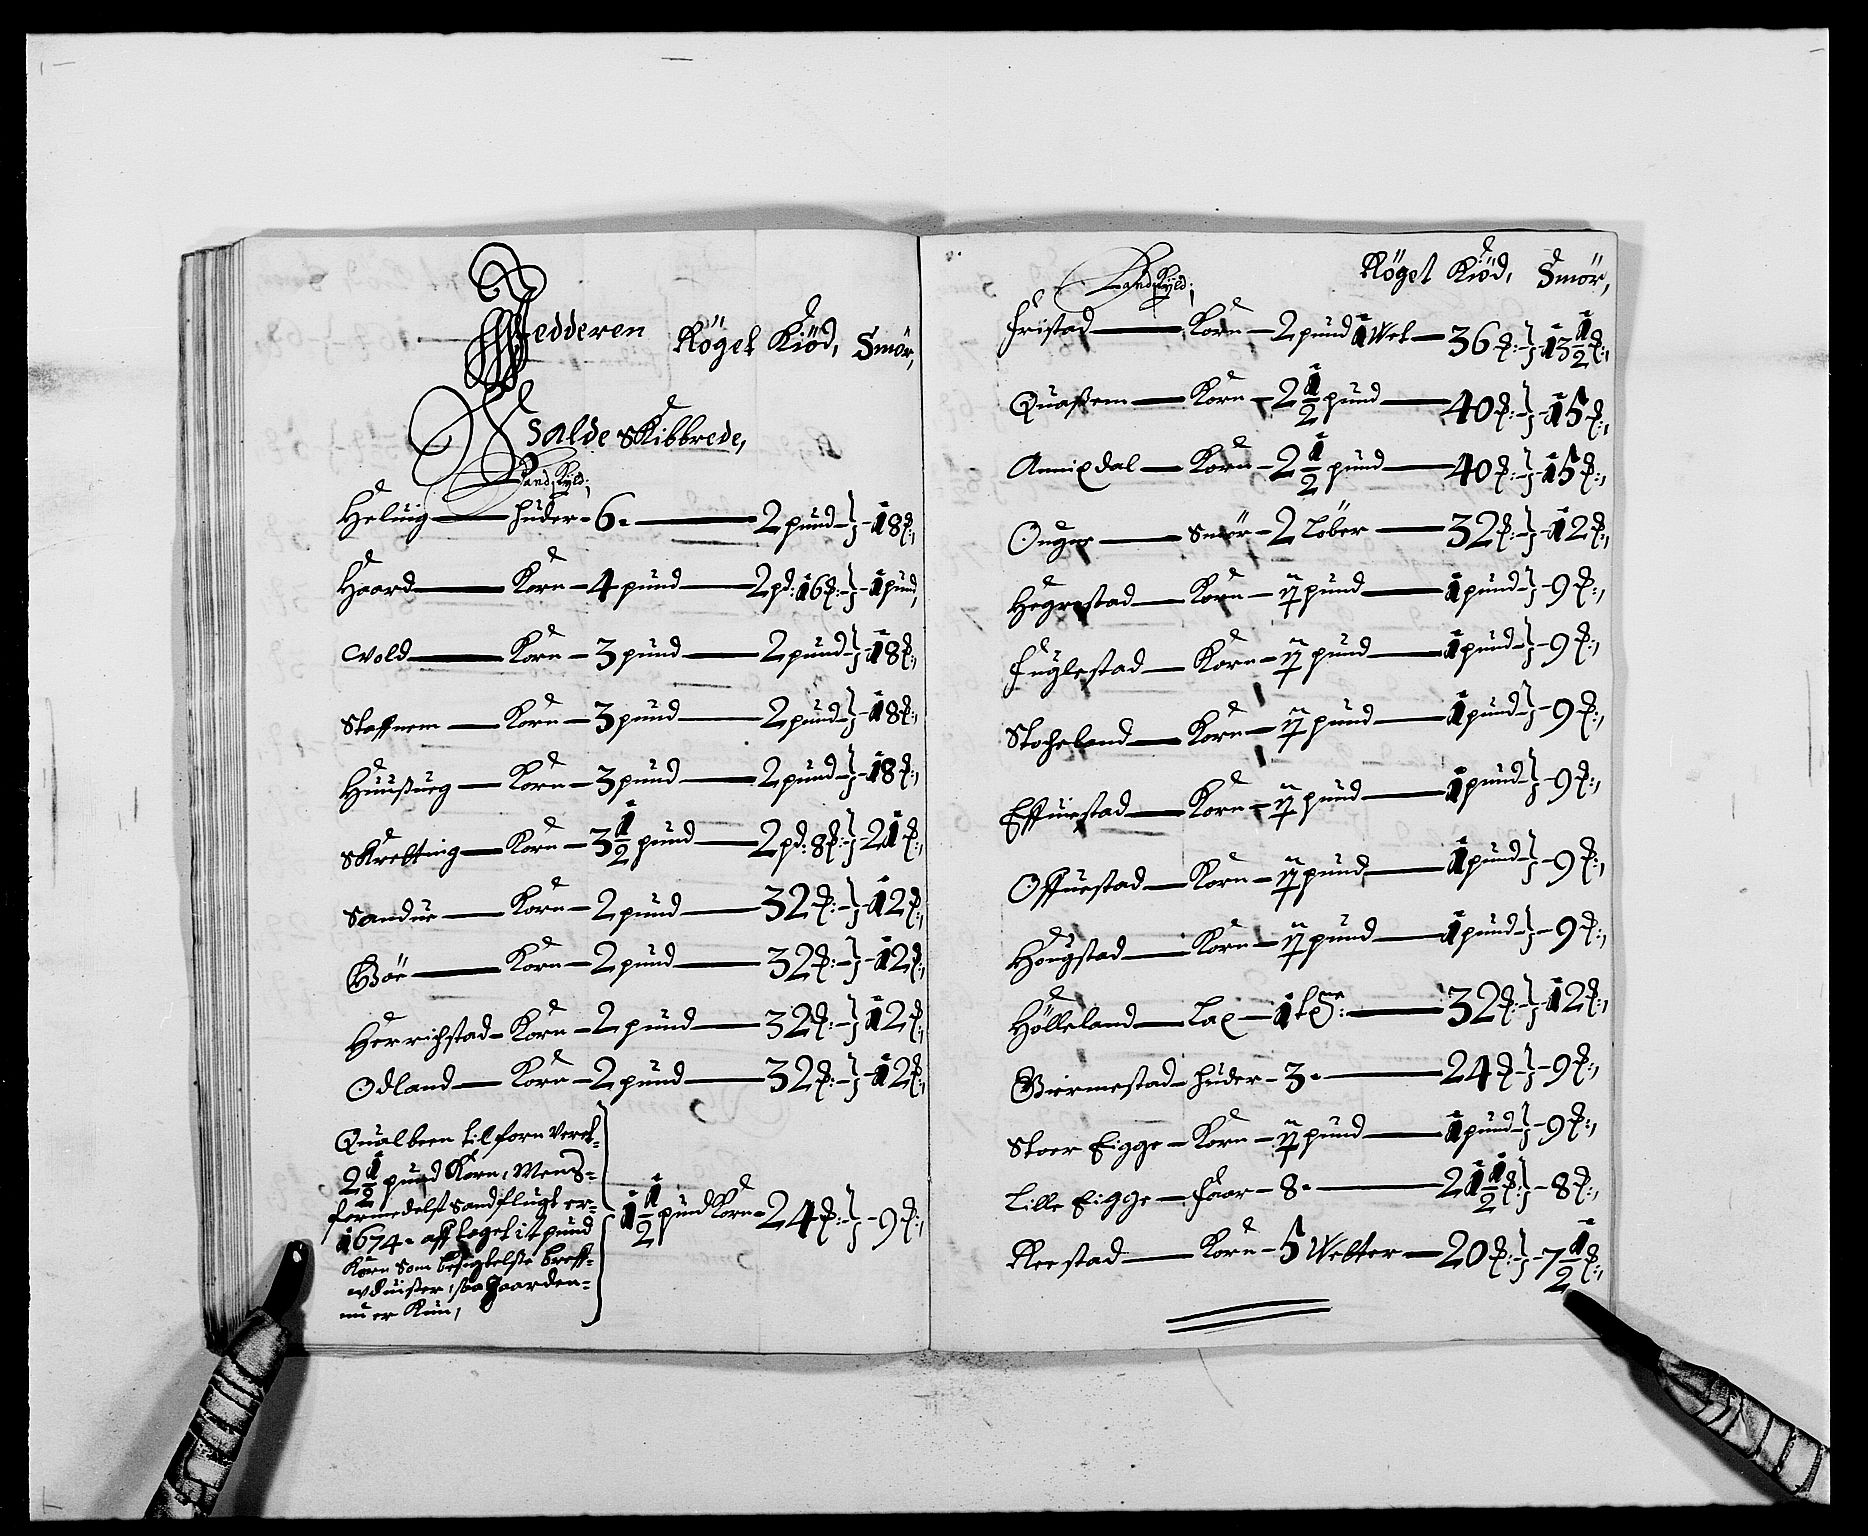 Jedderen Röget Kiöd, Smör,
Hvalde Skibbrede,
Landskyld;
Heluig — huder - 6 - — 2 pund - 18 ℔:,
Haard — Korn - 4 pund — 2 pd: 16 ℔: - 1 pund,
Wold — Korn - 3 pund — 2 pund - 18 ℔:,
Staffnem — Korn - 3 pund — 2 pund - 18 ℔:,
Huußueg — Korn - 3 pund — 2 pund - 18 ℔:,
Skretting — Korn - 3 1/2 pund — 2 pd: 8 ℔: - 21 ℔:,
Sandue — Korn - 2 pund — 32 ℔: - 12 ℔:,
Böe — Korn - 2 pund — 32 ℔: - 12 ℔:,
Herrichstad - Korn - 2 pund — 32 ℔: - 12 ℔:,
Odland — Korn - 2 pund — 32 ℔: - 12 ℔:,
Qualbeen tilforn Veret-
2 1/2 pund Korn, Mens-
formedelst Sandflugt er-
1674 - afftaget it pund
Korn Som besigtelße breff-
uduißer, saa Gaarden-
nu er Kun,
1 1/2 pund Korn - 24 ℔: - 9 ℔:,
Landskyld; Röget Kiöd, Smör,
Fristad — Korn - 2 pund 1 Wet — 36 ℔: - 13 1/2 ℔:,
Quaßem — Korn - 2 1/2 pund — 40 ℔: - 15 ℔:,
Annixdal — Korn - 2 1/2 pund — 40 ℔: - 15 ℔:,
Ougne — Smör - 2 Löber — 32 ℔: - 12 ℔:,
Hegrestad — Korn - pund — 1 pund - 9 ℔:,
Fuglestad — Korn - pund — 1 pund - 9 ℔:,
Stocheland — Korn - pund — 1 pund - 9 ℔:,
Effuestad — Korn - pund — 1 pund - 9 ℔:,
Offuestad — Korn - pund — 1 pund - 9 ℔:,
Hougstad — Korn - pund — 1 pund - 9 ℔:,
Hölleland — Lax - 1 — 32 ℔: - 12 ℔:,
Biermestad - huder - 3 - — 24 ℔ - 9 ℔:,
Stoer Eigge - Korn - pund — 1 pund - 9 ℔:,
Lille Eigge - Faar - 8 - — 21 1/2 ℔: - 8 ℔:,
Reestad — Korn - 5 Wetter — 20 ℔: - 7 1/2 ℔:,